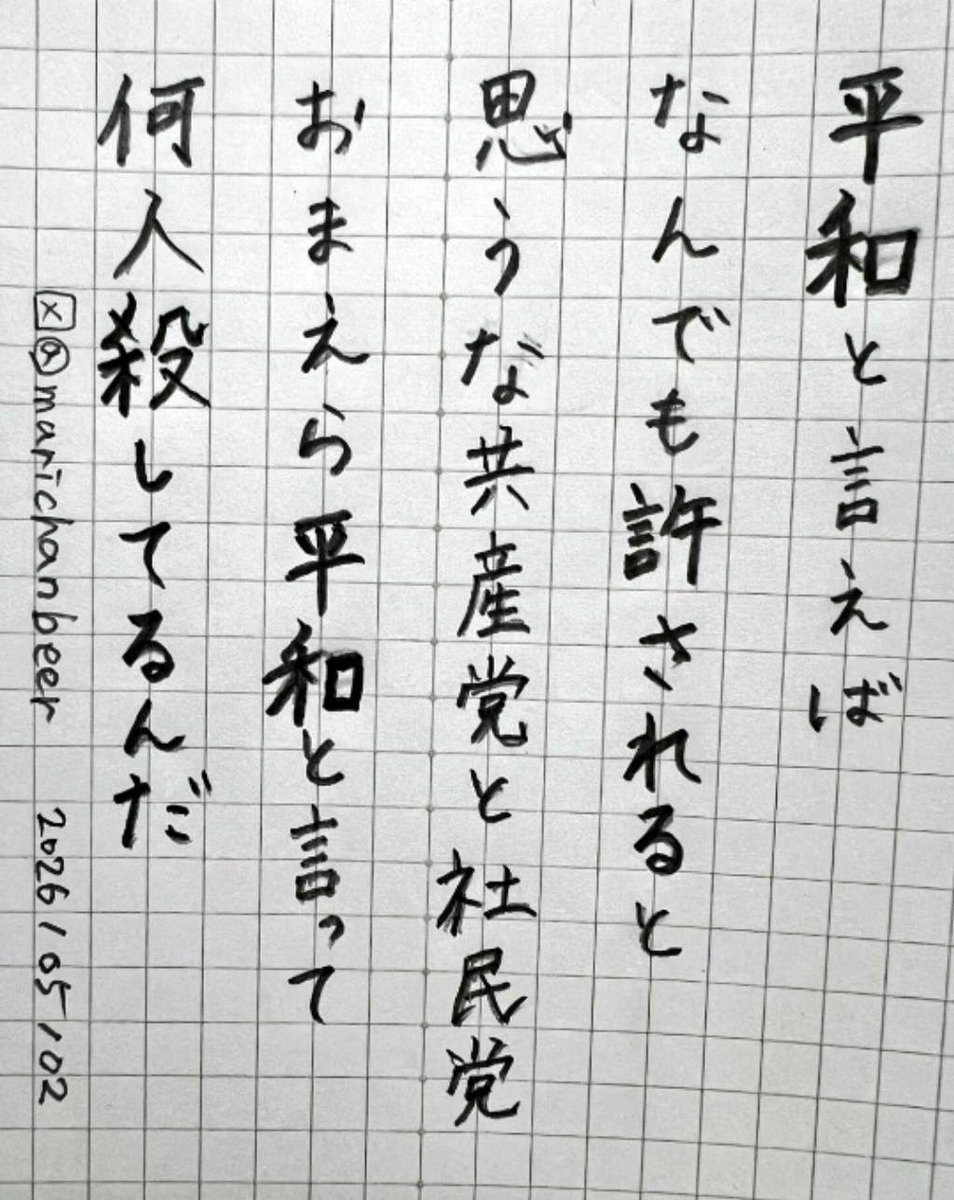 平和と言えば
なんでも許されると
思うな共産党と社民党
おまえら平和と言って
何人殺してるんだ
X@marichanbeer 2026/05/02